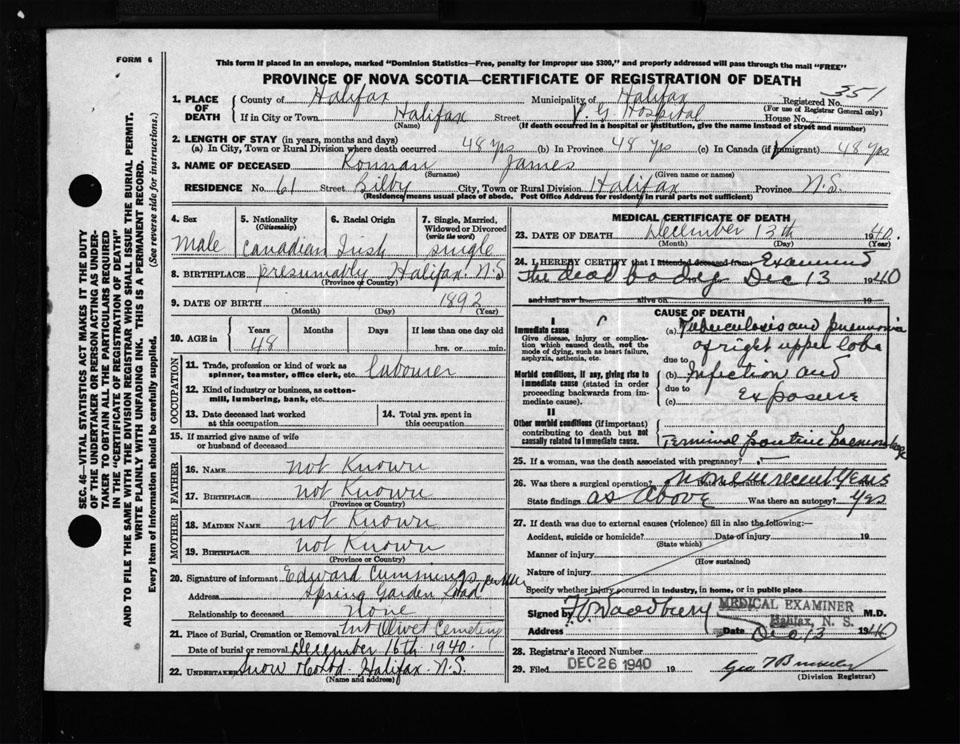 FORM 6
This form if placed in an envelope, marked "Dominion Statistics—Free, penalty for improper use $300," and properly addressed will pass through the mail "FREE"
PROVINCE OF NOVA SCOTIA—CERTIFICATE OF REGISTRATION OF DEATH
351
1. PLACE OF DEATH { County of Halifax Municipality of Halifax Registered No.
(For use of Registrar General only)
If in City or Town Halifax Street V. G. Hospital House No.
(Name) (If death occurred in a hospital or institution, give the name instead of street and number)
2. LENGTH OF STAY (in years, months and days)
(a) In City, Town or Rural Division where death occurred 48 yrs (b) In Province 48 yrs (c) In Canada (if immigrant) 48 yrs
3. NAME OF DECEASED James
(Surname) (Given name or names)
RESIDENCE No. 61 Street Bilby City, Town or Rural Division Halifax Province N.S.
(Residence means usual place of abode. Post Office Address for residents in rural parts not sufficient)
4. Sex 5. Nationality (Citizenship) 6. Racial Origin 7. Single, Married, Widowed or Divorced (write the word)
Male Canadian Irish single
8. BIRTHPLACE presumably Halifax N.S
(Province or Country)
9. DATE OF BIRTH 1892
(Month) (Day) (Year)
10. AGE in { Years Months Days If less than one day old
48 hrs. or min.
OCCUPATION
11. Trade, profession or kind of work as spinner, teamster, office clerk, etc. labourer
12. Kind of industry or business, as cotton-mill, lumbering, bank, etc.
13. Date deceased last worked at this occupation 14. Total yrs. spent in this occupation
15. If married give name of wife or husband of deceased
FATHER
16. NAME not Known
17. BIRTHPLACE not Known
(Province or Country)
MOTHER
18. MAIDEN NAME not Known
19. BIRTHPLACE not Known
(Province or Country)
20. Signature of informant Edward Cummings
Address Spring Garden Road
Relationship to deceased None
21. Place of Burial, Cremation or Removal Mnt Olivet Cemetery
Date of burial or removal December 16th 1940.
22. UNDERTAKER Snow Halifax N.S.
(Name and address)
MEDICAL CERTIFICATE OF DEATH
23. DATE OF DEATH December 13th 1940.
(Month) (Day) (Year)
24. I HEREBY CERTIFY that I attended deceased from Examined
the dead body Dec 13 1940
and last saw h alive on 19
CAUSE OF DEATH
I
Immediate cause
Give disease, injury or complication which caused death, not the mode of dying, such as heart failure, asphyxia, asthenia, etc.
(a) Tuberculosis and pneumonia
of right upper lobe
due to
Morbid conditions, if any, giving rise to immediate cause (stated in order proceeding backwards from immediate cause).
(b) Infection and
due to
(c) Exposure
II
Other morbid conditions (if important) contributing to death but not causally related to immediate cause.
Terminal pontine haemorrhage
25. If a woman, was the death associated with pregnancy?
26. Was there a surgical operation? None in recent years
State findings as above Was there an autopsy? Yes
27. If death was due to external causes (violence) fill in also the following:—
Accident, suicide or homicide? Date of injury 19
(State which)
Manner of injury
(How sustained)
Nature of injury
Specify whether injury occurred in industry, in home, or in public place
Signed by Woodbury MEDICAL EXAMINER M.D.
Halifax, N. S.
Address Date Dec 13 1940
28. Registrar's Record Number
29. Filed DEC 26 1940 19
(Division Registrar)
SEC. 46—VITAL STATISTICS ACT MAKES IT THE DUTY
OF THE UNDERTAKER OR PERSON ACTING AS UNDER-
TAKER TO OBTAIN ALL THE PARTICULARS REQUIRED
IN THE "CERTIFICATE OF REGISTRATION OF DEATH"
AND TO FILE THE SAME WITH THE DIVISION REGISTRAR WHO SHALL ISSUE THE BURIAL PERMIT.
WRITE PLAINLY WITH UNFADING INK. THIS IS A PERMANENT RECORD.
Every item of Information should be carefully supplied. (See reverse side for instructions.)